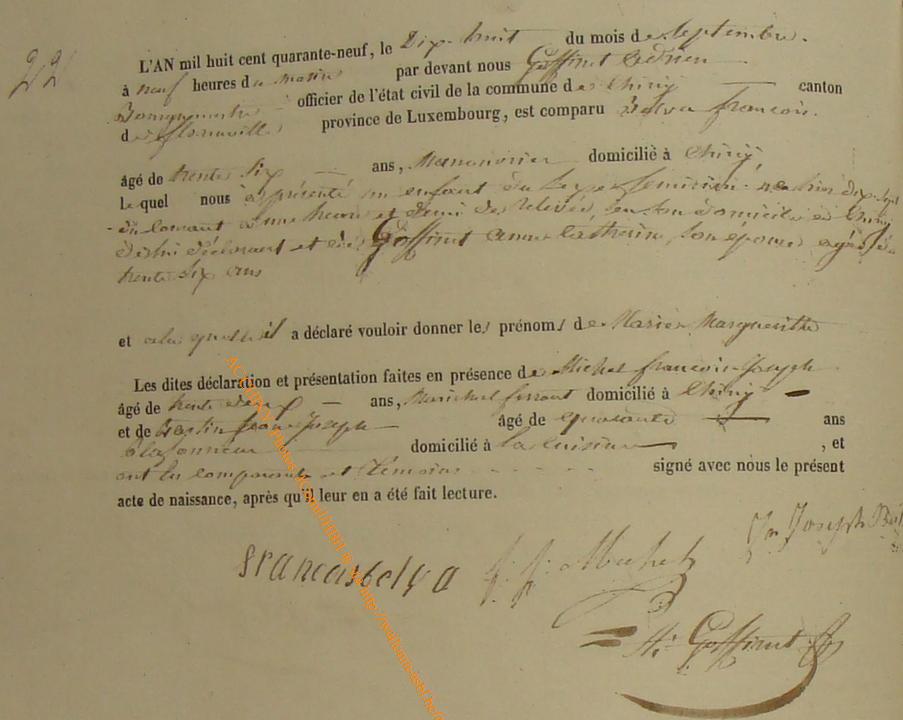 22
L'AN mil huit cent quarante-neuf, le Dix huit du mois de Septembre.
à neuf heures du matin par devant nous Goffinet Adrien
Bourgmestre officier de l'état civil de la commune de Chiny canton
de florenville province de Luxembourg, est comparu Delva françois.
âgé de trente six ans, Manouvrier domicilié à Chiny,
lequel nous a présenté un enfant du sexe feminin né hier dix sept
du courant à une heure et demi de relevée, en son domicile à Chiny
de lui déclarant et de Goffinet Anne Catherine, son épouse agée de
trente six ans
et auquel il a déclaré vouloir donner les prénoms de Marie Marguerithe
Les dites déclaration et présentation faites en présence de Michel françois Joseph
âgé de trente deux ans, Maréchal ferrant domicilié à Chiny
et de jean Joseph âgé de quarante ans
domicilié à la cuisine , et
ont les comparants et témoins signé avec nous le présent
acte de naissance, après qu'il leur en a été fait lecture.
francoisdelva f. j. Michel Jn Joseph
Ad. Goffinet